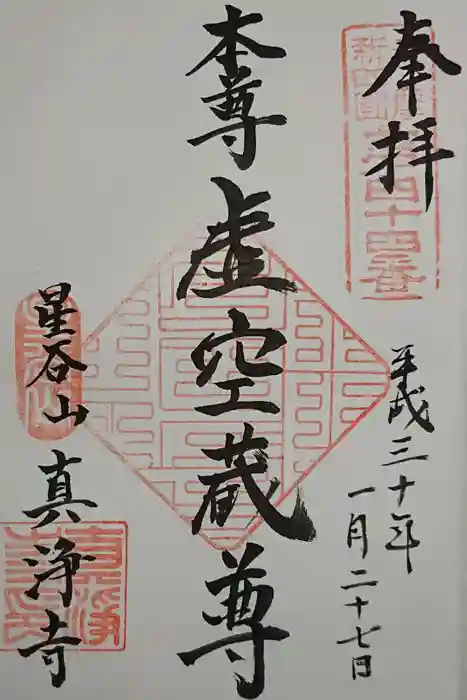 奉拝
第四十四番
平成三十年
一月二十七日
本尊 虚空蔵尊
星谷山
真浄寺